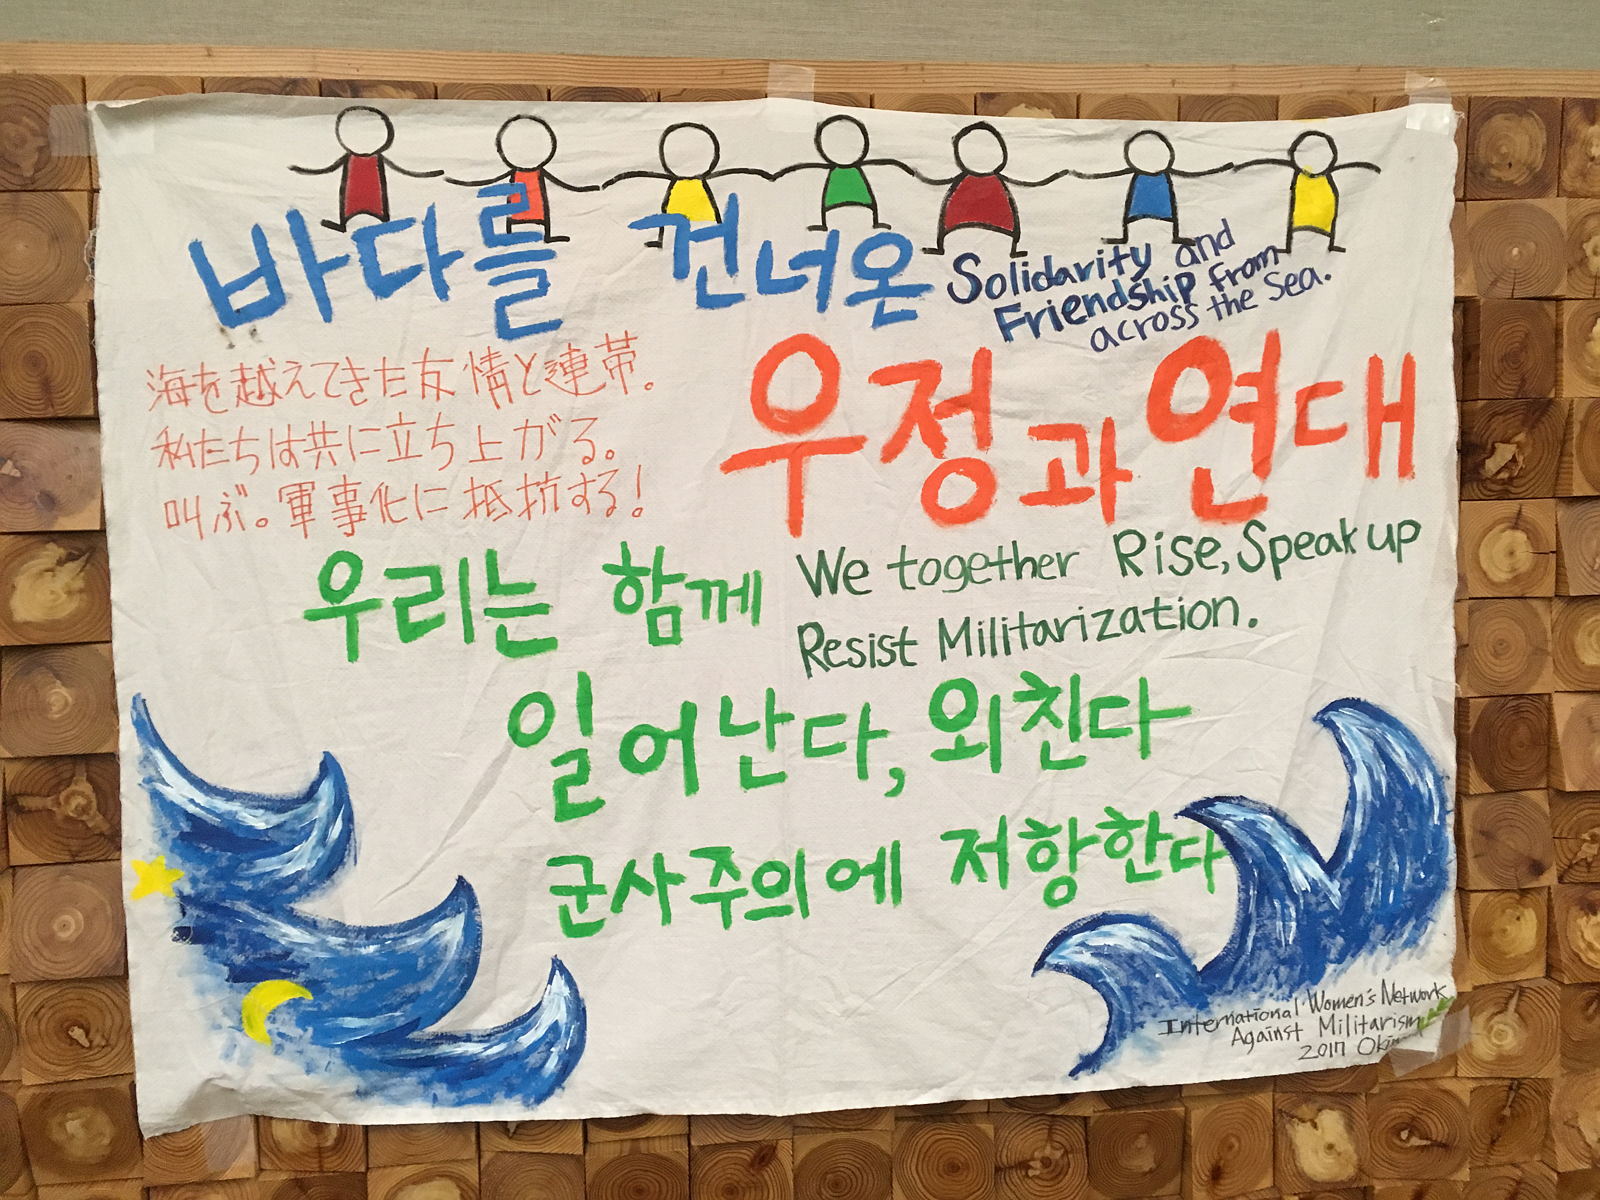 바다를 건너온
Solidarity and
Friendship from
across the Sea.
우정과 연대
海を越えてきた友情と連帯。
私たちは共に立ち上がる。
叫ぶ。軍事化に抵抗する!
우리는 함께
We together Rise, Speak up
Resist Militarization.
일어난다, 외친다
군사주의에 저항한다
International Women's Network
Against Militarism
2017